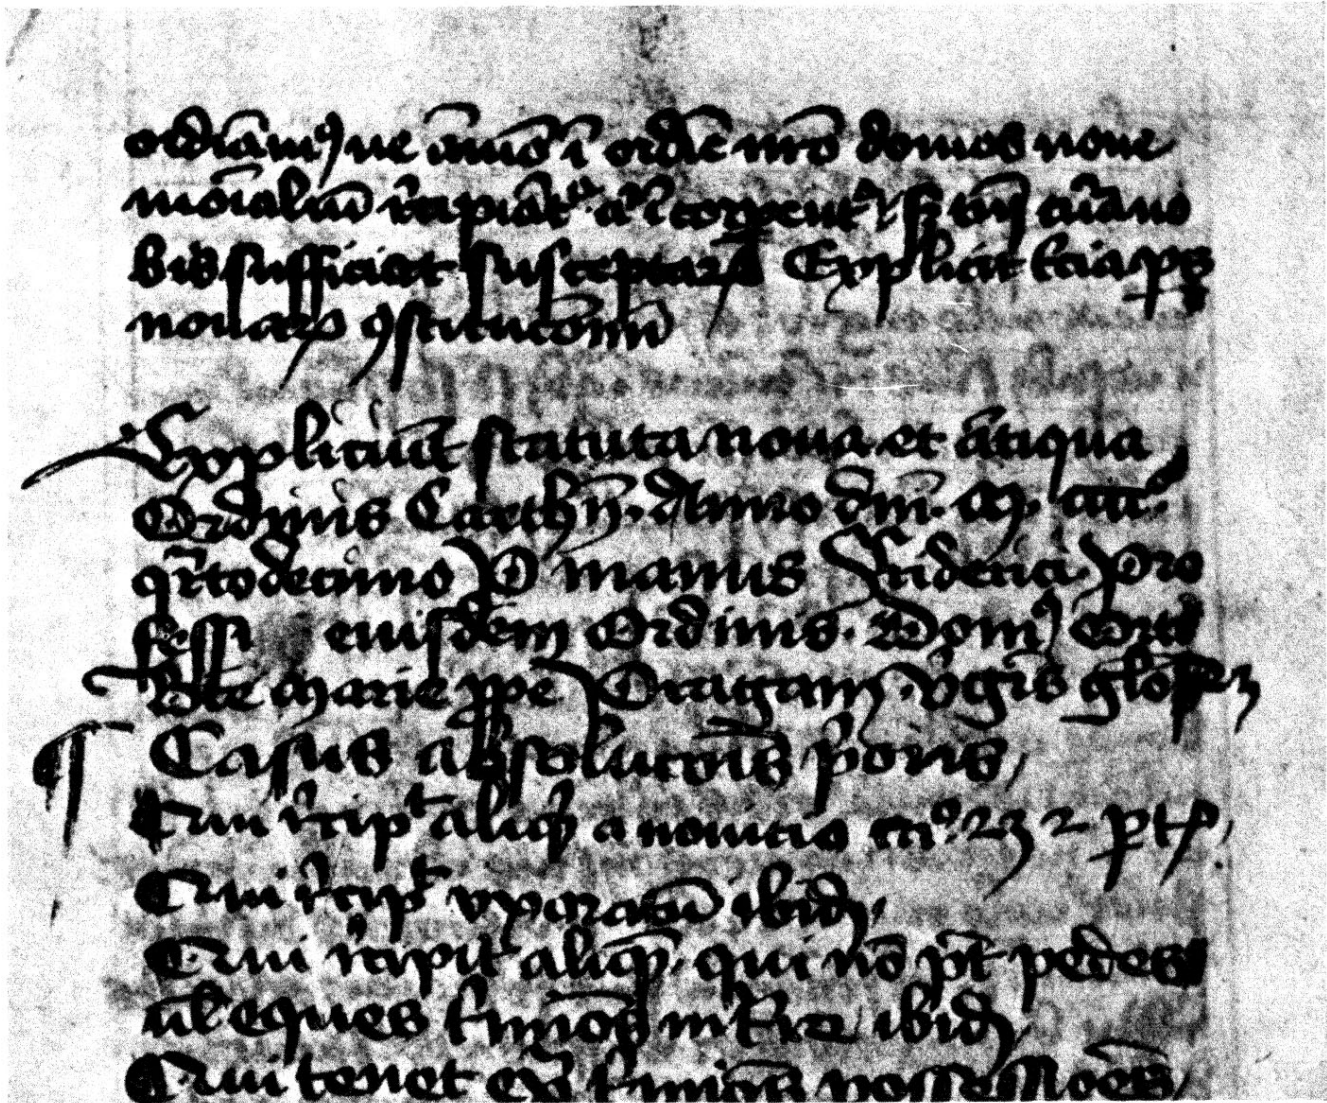 ordiam9 ne am̄o ī ordīe nr̄o domos noue
mōialiū rͥcipiāt͛ aͥ īcorporent͛ s; tm̄ cura no
bis sufficiat susceptarꝝ Explicit tͥcia ps
nouarꝝ ꝯstitucōnū
Expliciūt statuta noua et ātiqua
Ordinis Carthn̄. Anno dni. M. cccc.
qͬtodecimo P manus Friderici Pro
fessi eiusdem Ordinis. Dom9 Orti
Bt̄e Marie ꝓpe Pragam. vͥgīs glo
Casus absolucōis pͥoris,
Qui rͥcipͭ aliqͥ a nouicio cciͦ 23 2 ptꝭ,
Qui rͥcipͭ vxoratū ibid
Qui rͥcipit aliqͥ qui nō pt̄ pedes
ul̄ eques ibid
Qui tenet exͣ possessiōes